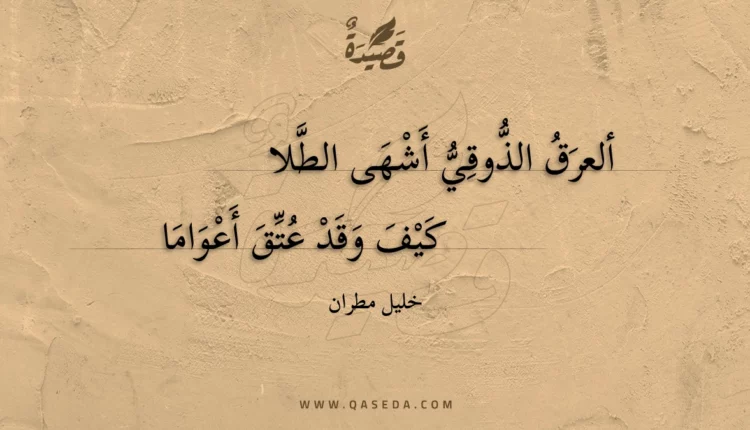 قَصِيدَةٌ
ألعرَقُ الذُّوقِيُّ أَشْهَى الطَّلا
كَيْفَ وَقَدْ عُتِّقَ أَعْوَامَا
خليل مطران
WWW.QASEDA.COM